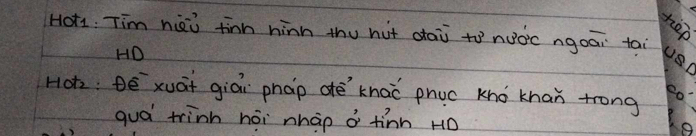 Hot1: Tìm hiểu tình hình thu hút đầu tư nước ngoài tại
HD
Hot2: Đề xuất giải pháp để khắc phục khó khăn trong
quá trình hội nhập ở tỉnh HD